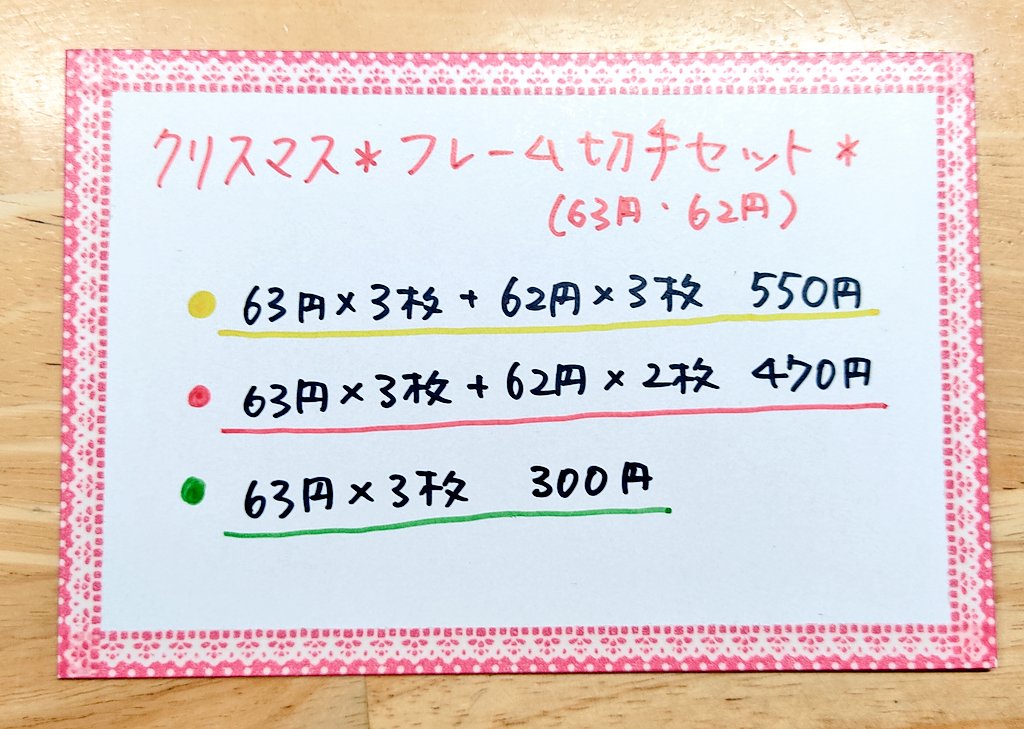 クリスマス*フレーム切手セット*
(63円・62円)
63円×3枚+62円×3枚 550円
63円×3枚+62円×2枚 470円
63円×3枚 300円